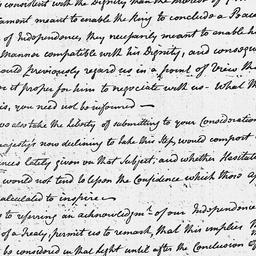 consistent with the Dignity than the Interest of
ament meant to enable the King to conclude a Peace
of Independence, they necessarily meant to enable h
Manner compatible with his Dignity, and conseq
ould previously regard us in a point of View th
e it proper for him to negociate with us — What th
is, you need not be informed —
us also take the Liberty of submitting to your Consideration
Majesty's now declining to take this Step, would comport
ances lately given on that Subject, and whether Hesitat
would not tend to lessen the Confidence which those a
calculated to inspire —
to referring an acknowledgmt. of our Independence
of a Treaty, permit us to remark, that this implies
be considered in that Light until after the Conclusion of